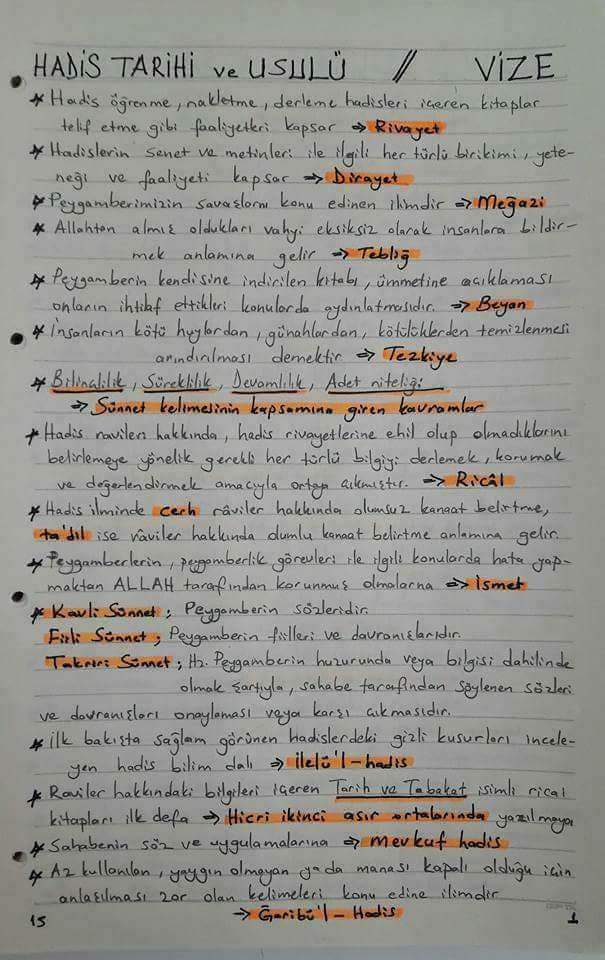 HADİS TARİHİ ve USULÜ // VİZE
* Hadis öğrenme, nakletme, derleme hadisleri içeren kitaplar
telif etme gibi faaliyetleri kapsar ⇒ Rivayet
* Hadislerin senet ve metinleri ile ilgili her türlü birikimi, yete-
neği ve faaliyeti kapsar ⇒ Dirayet
* Peygamberimizin savaşlarını konu edinen ilimdir ⇒ Meğazi
* Allahtan almış oldukları vahyi eksiksiz olarak insanlara bildir-
mek anlamına gelir ⇒ Tebliğ
* Peygamberin kendisine indirilen kitabı, ümmetine açıklaması
onların ihtilaf ettikleri konularda aydınlatmasıdır. ⇒ Beyan
* İnsanların kötü huylardan, günahlardan, kötülüklerden temizlenmesi
arındırılması demektir ⇒ Tezkiye
* Bilinçlilik, Süreklilik, Devamlılık, Adet niteliği
⇒ Sünnet kelimesinin kapsamına giren kavramlar
* Hadis ravileri hakkında, hadis rivayetlerine ehil olup olmadıklarını
belirlemeye yönelik gerekli her türlü bilgiyi derlemek, korumak
ve değerlendirmek amacıyla ortaya çıkmıştır. ⇒ Ricâl
* Hadis ilminde cerh râviler hakkında olumsuz kanaat belirtme,
ta'dîl ise râviler hakkında olumlu kanaat belirtme anlamına gelir.
* Peygamberlerin, peygamberlik görevleri ile ilgili konularda hata yap-
maktan ALLAH tarafından korunmuş olmalarına ⇒ İsmet
* Kavli Sünnet; Peygamberin sözleridir.
Fiili Sünnet; Peygamberin fiilleri ve davranışlarıdır.
Takriri Sünnet; Hz. Peygamberin huzurunda veya bilgisi dahilinde
olmak şartıyla, sahabe tarafından söylenen sözleri
ve davranışları onaylaması veya karşı çıkmasıdır.
* İlk bakışta sağlam görünen hadislerdeki gizli kusurları incele-
yen hadis bilim dalı ⇒ İlelü'l-hadis
* Raviler hakkındaki bilgileri içeren Tarih ve Tabakat isimli rical
kitapları ilk defa ⇒ Hicri ikinci asır ortalarında yazılmaya
* Sahabenin söz ve uygulamalarına ⇒ Mevkuf hadis
* Az kullanılan, yaygın olmayan ya da manası kapalı olduğu için
anlaşılması zor olan kelimeleri konu edine ilimdir
⇒ Ğaribü'l-Hadis
15 1